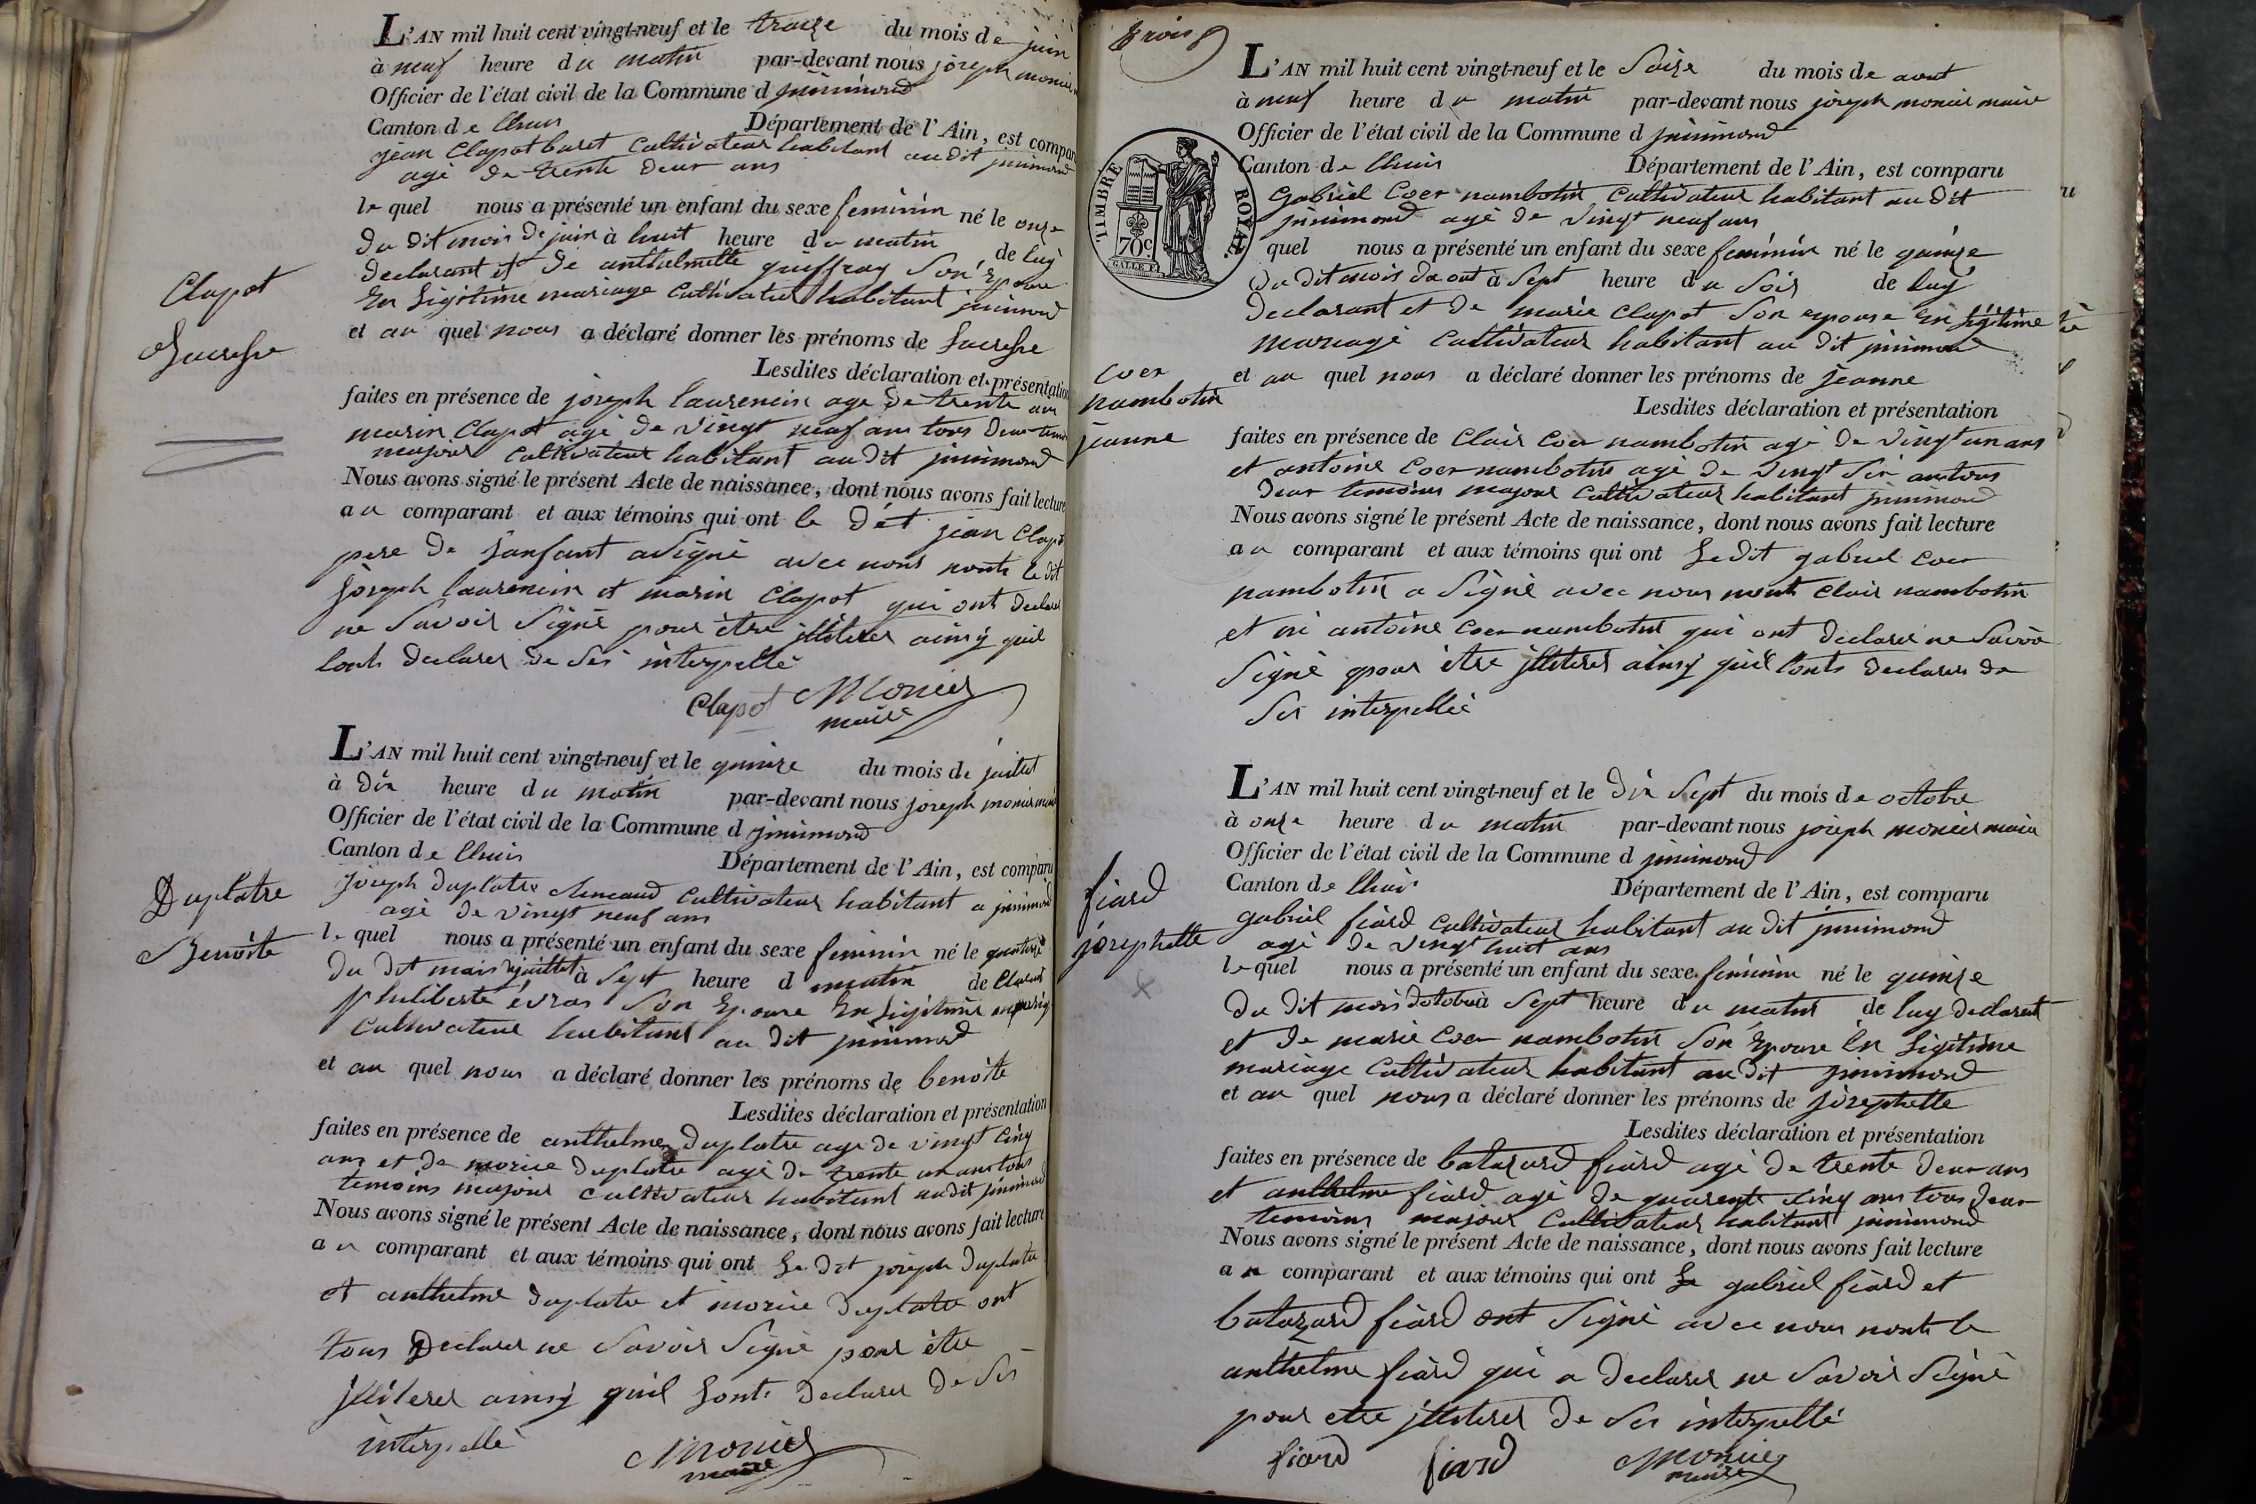 L'AN mil huit cent vingt-neuf et le treize du mois de juin
à neuf heure du matin par-devant nous joseph monier
Officier de l'état civil de la Commune d jninimond
Canton de lhuis Département de l'Ain, est comparu
jean Clapot buret Cultivateur habitant au dit jninimond
agé de trente deux ans
le quel nous a présenté un enfant du sexe feminin né le onze
du dit mois de juin à huit heure du matin de luy
declarant et de anthelmette guiffray Son Epouse
En Légitime mariage Cultivateur habitant jninimond
et au quel nous a déclaré donner les prénoms de Lucresse
Clapot
Lucresse
Lesdites déclaration et présentation
faites en présence de joseph laurencin age de trente ans
marin Clapot agé de vingt neuf ans tous deux
majour Cultivateur habitant au dit jninimond
Nous avons signé le présent Acte de naissance, dont nous avons fait lecture
au comparant et aux témoins qui ont le dit jean Clapot
pere de Lanfant a Signé avec nous nonts le dit
joseph laurencin et marin Clapot qui ont declarer
ne Savoir Signé pour être jlliterer ainsy quil
lonts declarer de Ses interpellé
Clapot Monier
maire
L'AN mil huit cent vingt-neuf et le quinze du mois de juillet
à dix heure du matin par-devant nous joseph monier maire
Officier de l'état civil de la Commune d jninimond
Canton de lhuis Département de l'Ain, est comparu
joseph duplatre Cultivateur habitant a jninimond
agé de vingt neuf ans
le quel nous a présenté un enfant du sexe feminin né le quatorze
du dit mois juillet à Sept heure d matin de
philiberte évras Son Epouse En Légitime
Cultivateur habitant au dit jninimond
et au quel nous a déclaré donner les prénoms de benoite
Duplatre
Benoite
Lesdites déclaration et présentation
faites en présence de anthelme duplatre age de vingt cinq
ans et de morice duplatre agé de trente un ans tous
temoins majour cultivateur habitant au dit jninimond
Nous avons signé le présent Acte de naissance, dont nous avons fait lecture
au comparant et aux témoins qui ont Le dit joseph duplatre
et anthelme duplatre et morice duplatre ont
tous declarer ne Savoir Signé pour être
jlliterer ainsy quil Lonts declarer de Ses
interpellé
Monier
maire
trois
L'AN mil huit cent vingt-neuf et le Saize du mois de aout
à neuf heure du matin par-devant nous joseph monier maire
Officier de l'état civil de la Commune d jninimond
Canton de lhuis Département de l'Ain, est comparu
TIMBRE ROYAL
70c.
gabriel Coer nambotin Cultivateur habitant au dit
jninimond agé de vingt neuf ans
quel nous a présenté un enfant du sexe feminin né le quinze
du dit mois da out à Sept heure du Soir de luy
declarant et de marie Clapot Son epouse En Légitime
mariage Cultivateur habitant au dit jninimond
et au quel nous a déclaré donner les prénoms de jeanne
Coer
nambotin
jeanne
Lesdites déclaration et présentation
faites en présence de Clair Coer nambotin agé de vingt un ans
et antoine Coer nambotin agé de vingt Six ans tous
deux temoins majour Cultivateur habitant jninimond
Nous avons signé le présent Acte de naissance, dont nous avons fait lecture
au comparant et aux témoins qui ont Le dit gabriel Coer
nambotin a Signé avec nous nonts Clair nambotin
et ni antoine Coer nambotin qui ont declarer ne Savoir
Signé pour être jlliterer ainsy quil Lonts declarer de
Ses interpellé
L'AN mil huit cent vingt-neuf et le dix Sept du mois de octobre
à onze heure du matin par-devant nous joseph monier maire
Officier de l'état civil de la Commune d jninimond
Canton de lhuis Département de l'Ain, est comparu
gabriel fiard Cultivateur habitant au dit jninimond
agé de vingt huit ans
le quel nous a présenté un enfant du sexe feminin né le quinze
du dit mois doctobre à Sept heure du matin de luy declarant
et de marie Coer nambotin Son Epouse En Légitime
mariage Cultivateur habitant au dit jninimond
et au quel nous a déclaré donner les prénoms de josephette
fiard
josephette
Lesdites déclaration et présentation
faites en présence de batazard fiard agé de trente deux ans
et anthelme fiard agé de quarente cinq ans tous deux
temoins majour Cultivateur habitant jninimond
Nous avons signé le présent Acte de naissance, dont nous avons fait lecture
au comparant et aux témoins qui ont Le gabriel fiard et
batazard fiard ont Signé avec nous nonts le
anthelme fiard qui a declarer ne Savoir Signé
pour etre jlliterer de Ses interpellé
fiard fiard Monier
maire